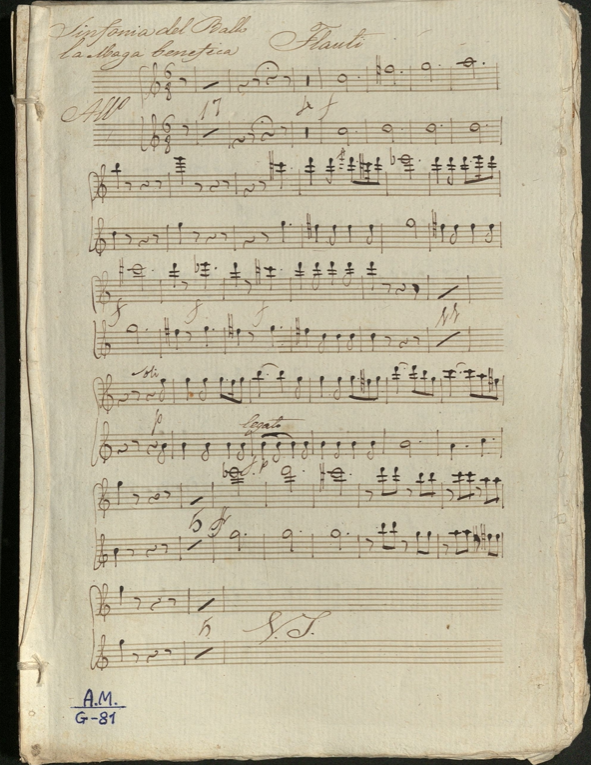 Sinfonia del Ballo
la Maga benefica
Flauti
All.º
6
8
17
f
6
8
f
f
f
44
Soli
p
legato
f. p
5
5
V. S.
A.M.
G-81